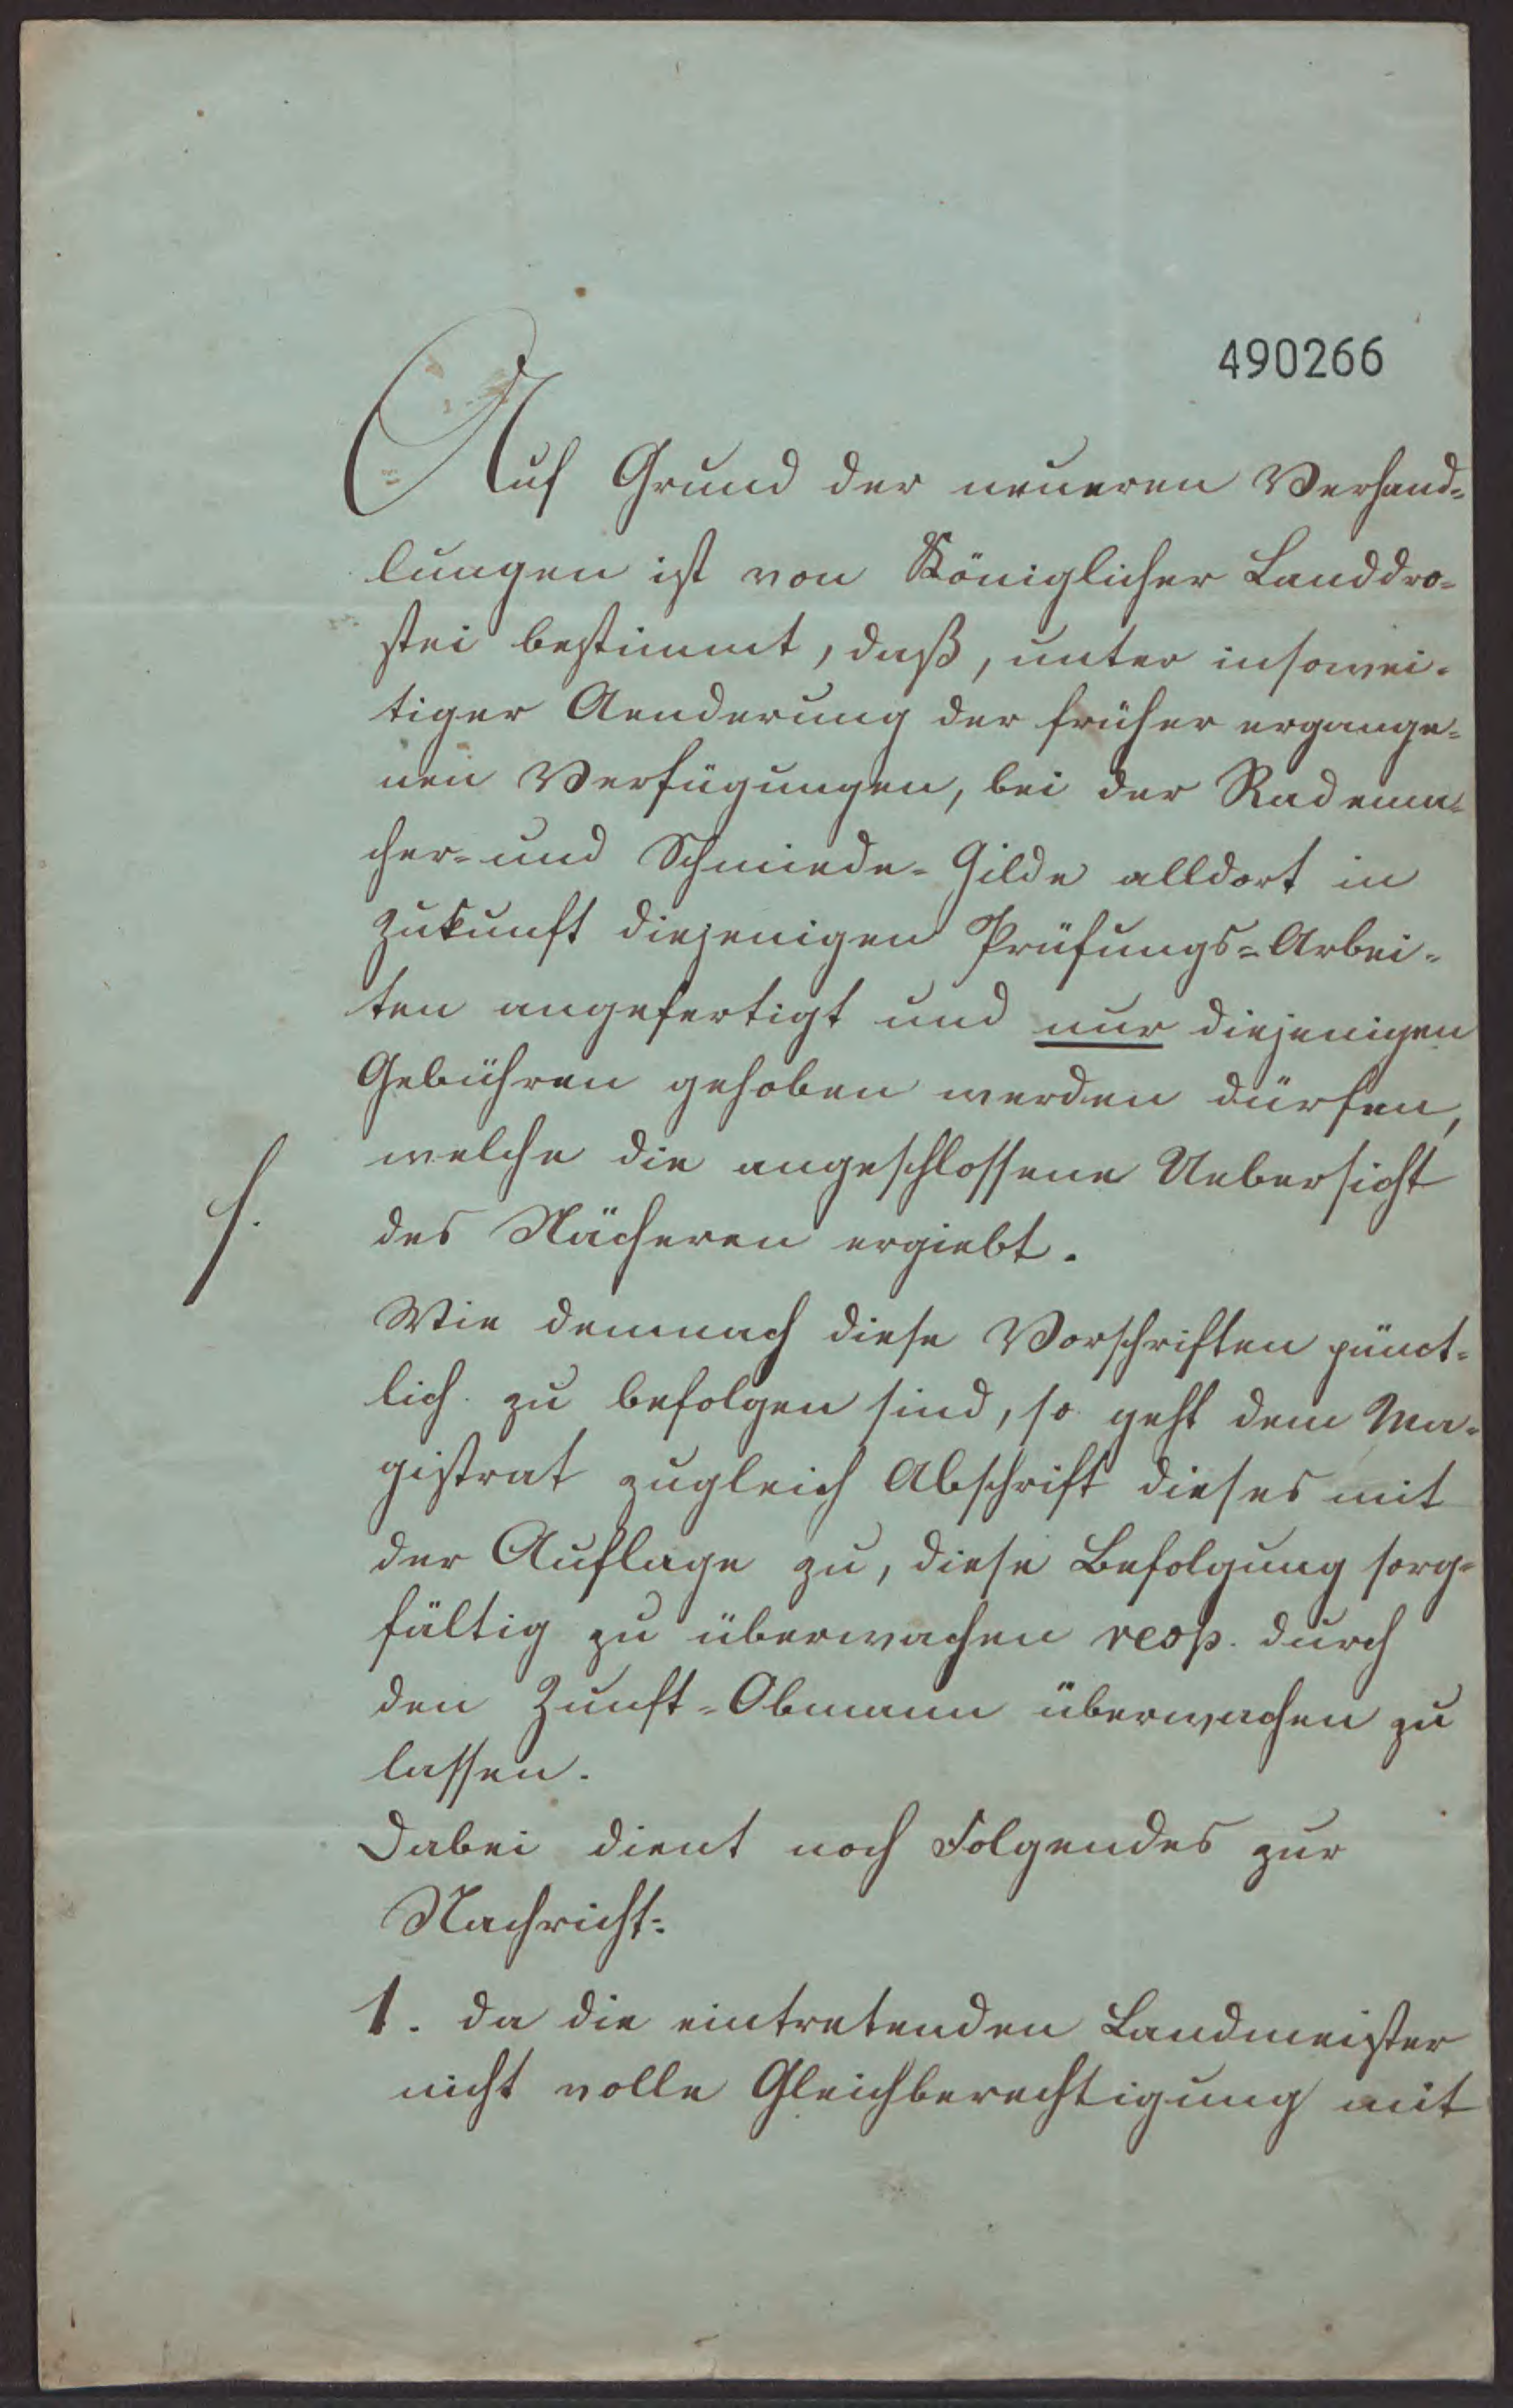 490266
Auf Grund der neueren Verhand=
lungen ist von Königlicher Landdro=
stei bestimmt, daß, unter insowei=
tiger Aenderung der früher ergange=
nen Verfügungen, bei der Radema=
cher- und Schmiede-Gilde alldort in
Zukunft diejenigen Prüfungs=Arbei=
ten angefertigt und nur diejenigen
Gebühren gehoben werden dürfen,
welche die angeschlossene Uebersicht
des Näheren ergiebt.
Wie demnach diese Vorschriften pünct=
lich zu befolgen sind, so geht dem Ma=
gistrat zugleich Abschrift dieses mit
der Auflage zu, diese Befolgung sorg=
fältig zu überwachen resp. durch
den Zunft=Obmann überwachen zu
lassen.
Dabei dient noch Folgendes zur
Nachricht:
1. da die eintretenden Landmeister
nicht volle Gleichberechtigung mit